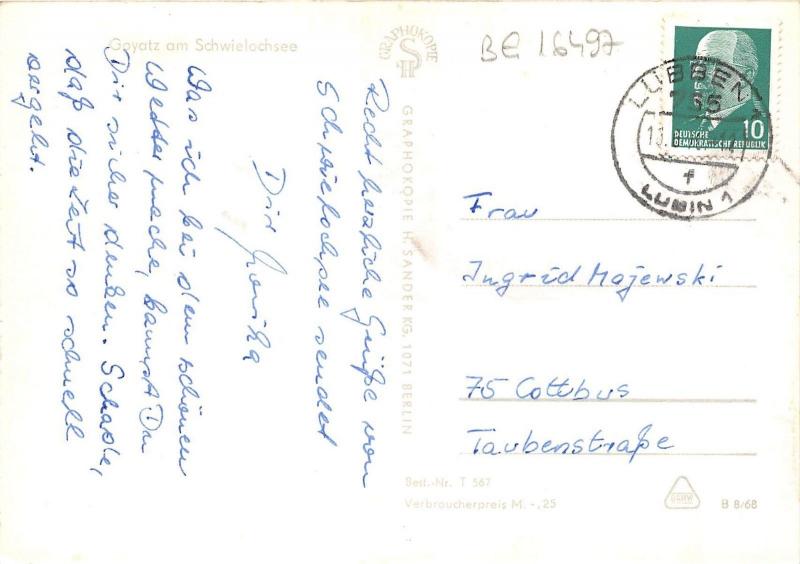 Goyatz am Schwielochsee
Recht herzliche Grüße vom
Schwielochsee sendet
Dir Monika
Was ich bei dem schönen
Wetter mache, kannst Du
Dir sicher denken. Schade,
daß die Zeit so schnell
vergeht.
GRAPHOKOPIE
GRAPHOKOPIE H. SANDER KG, 1071 BERLIN
BE 16497
LÜBBEN 1
755
LUBIN 1
f
10
DEUTSCHE
DEMOKRATISCHE REPUBLIK
Frau
Ingrid Majewski
75 Cottbus
Taubenstraße
Best.-Nr. T 567
Verbraucherpreis M. -,25
B 8/68